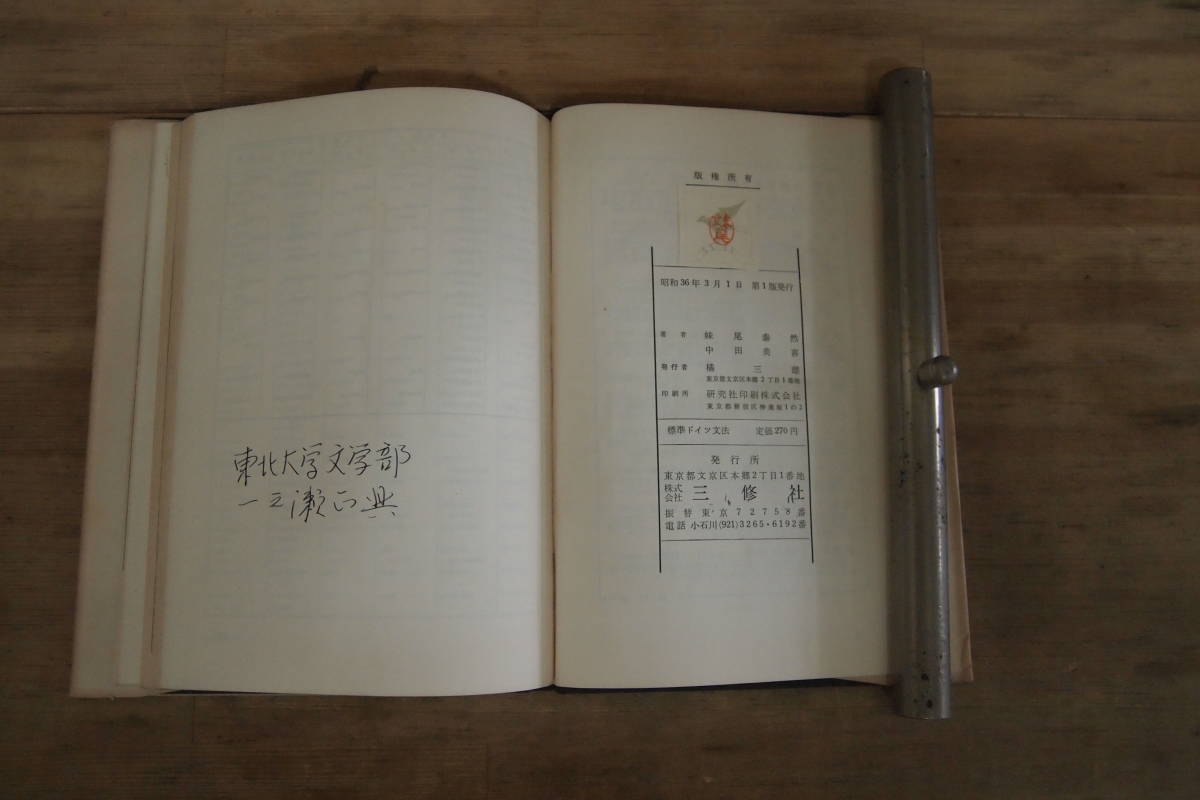 東北大学文学部
一之瀬正興
版権所有
妹尾
昭和36年3月1日 第1版発行
著者 妹尾泰然
中田美喜
発行者 橘三雄
東京都文京区本郷2丁目1番地
印刷所 研究社印刷株式会社
東京都新宿区神楽坂1の2
標準ドイツ文法 定価270円
発行所
東京都文京区本郷2丁目1番地
株式会社 三修社
振替東京72758番
電話 小石川(921)3265・6192番